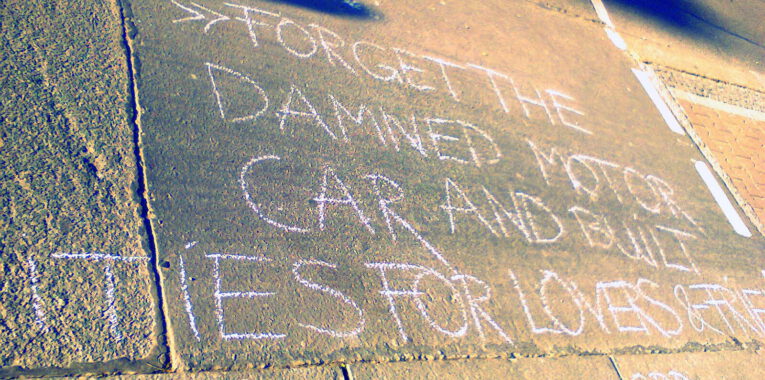 FORGET THE
DAMNED MOTOR
CAR AND BUILT
ITIES FOR LOVERS & FRIE